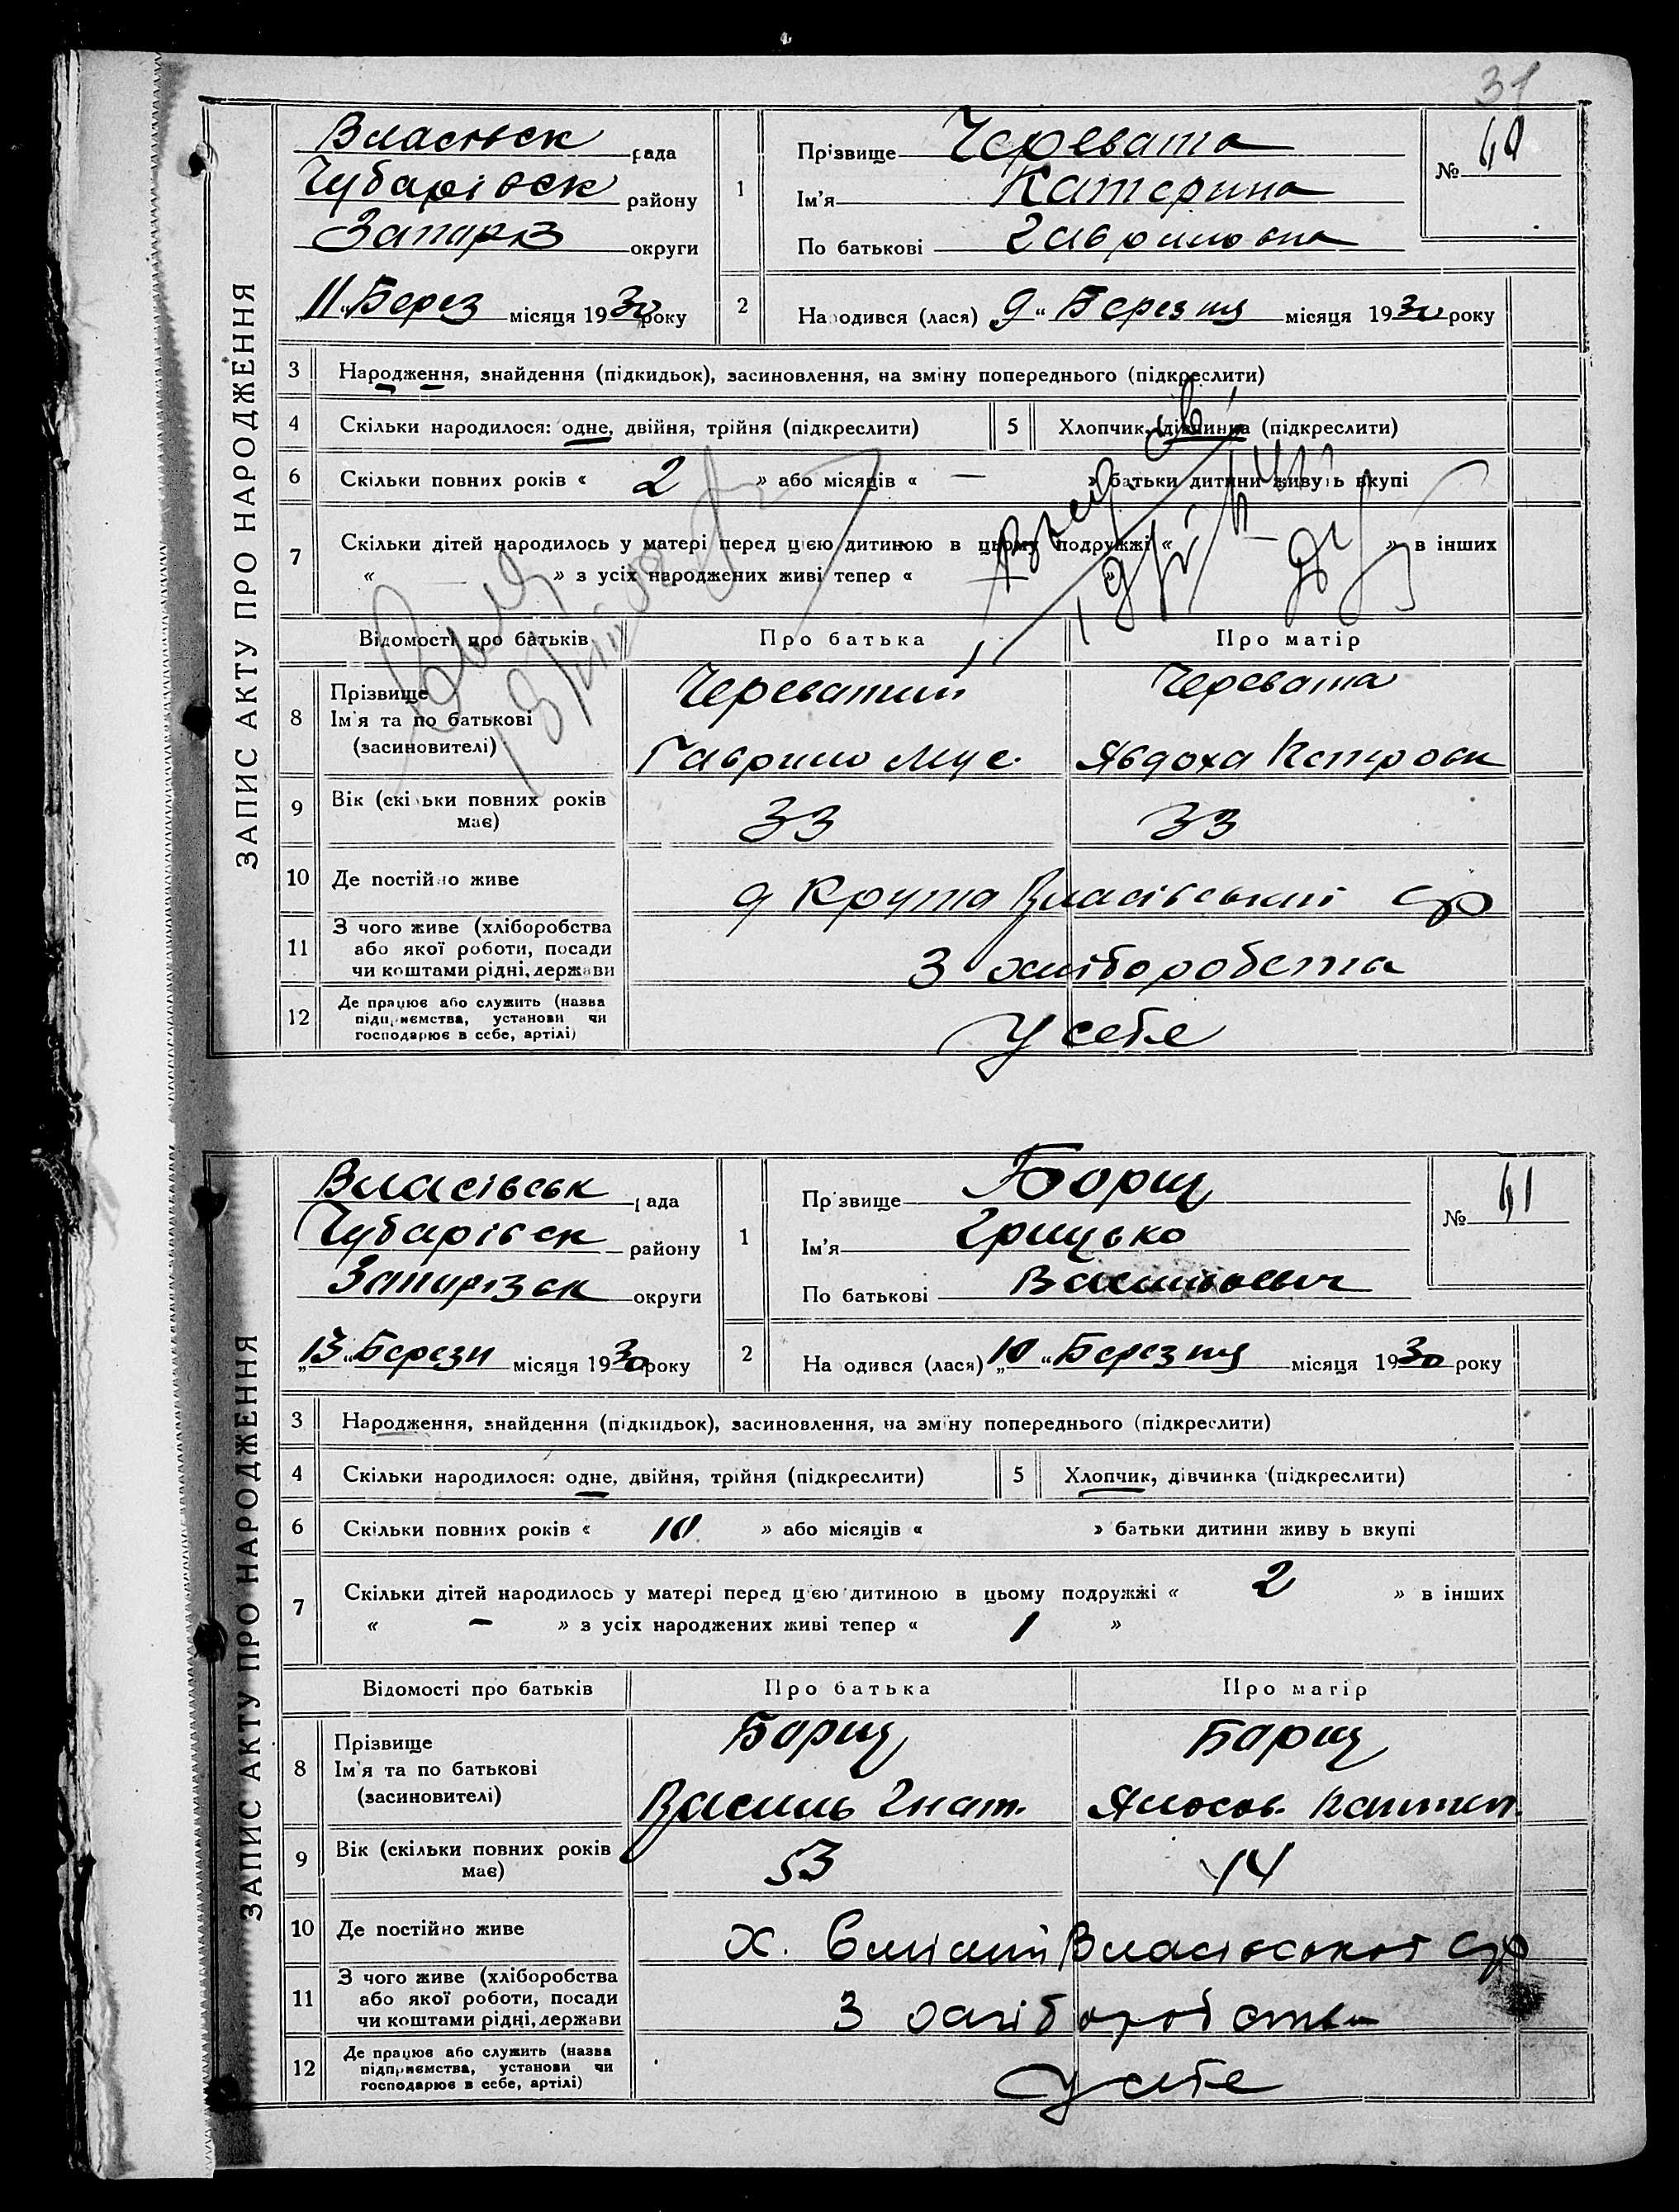 31
ЗАПИС АКТУ ПРО НАРОДЖЕННЯ
Власівск рада
Чубарівск району
Запоріз округи
„11“ Берез місяця 1930 року
1
Прізвище Черевата
Ім'я Катерина
По батькові Гавриловна
№ 40
2
Народився (лася) „9“ Березня місяця 1930 року
3 Народження, знайдення (підкидьок), засиновлення, на зміну попереднього (підкреслити)
4 Скільки народилося: одне, двійня, трійня (підкреслити)
5 Хлопчик, дівчинка (підкреслити)
6 Скільки повних років « 2 » або місяців « — » батьки дитини живуть вкупі
7 Скільки дітей народилось у матері перед цією дитиною в цьому подружжі « » в інших
« » з усіх народжених живі тепер « »
Відомості про батьків Про батька Про матір
8 Прізвище
Ім'я та по батькові
(засиновителі)
Череватий
Гаврило Мус.
Черевата
Явдоха Петровн
9 Вік (скільки повних років
має)
33 33
10 Де постійно живе
д Крута Власівський ср
11 З чого живе (хліборобства
або якої роботи, посади
чи коштами рідні, держави
З хліборобства
12 Де працює або служить (назва
підприємства, установи чи
господарює в себе, артілі)
У себе
ЗАПИС АКТУ ПРО НАРОДЖЕННЯ
Власівськ рада
Чубарівск району
Запорізьк округи
„13“ Березн місяця 1930 року
1
Прізвище Борщ
Ім'я Грицько
По батькові Васильович
№ 41
2
Народився (лася) „10“ Березня місяця 1930 року
3 Народження, знайдення (підкидьок), засиновлення, на зміну попереднього (підкреслити)
4 Скільки народилося: одне, двійня, трійня (підкреслити)
5 Хлопчик, дівчинка (підкреслити)
6 Скільки повних років « 10 » або місяців « » батьки дитини живуть вкупі
7 Скільки дітей народилось у матері перед цією дитиною в цьому подружжі « 2 » в інших
« – » з усіх народжених живі тепер « 1 »
Відомості про батьків Про батька Про матір
8 Прізвище
Ім'я та по батькові
(засиновителі)
Борщ
Василь Гнат.
Борщ
9 Вік (скільки повних років
має)
53 44
10 Де постійно живе
х. Власівської ср
11 З чого живе (хліборобства
або якої роботи, посади
чи коштами рідні, держави
З хліборобства
12 Де працює або служить (назва
підприємства, установи чи
господарює в себе, артілі)
У себе